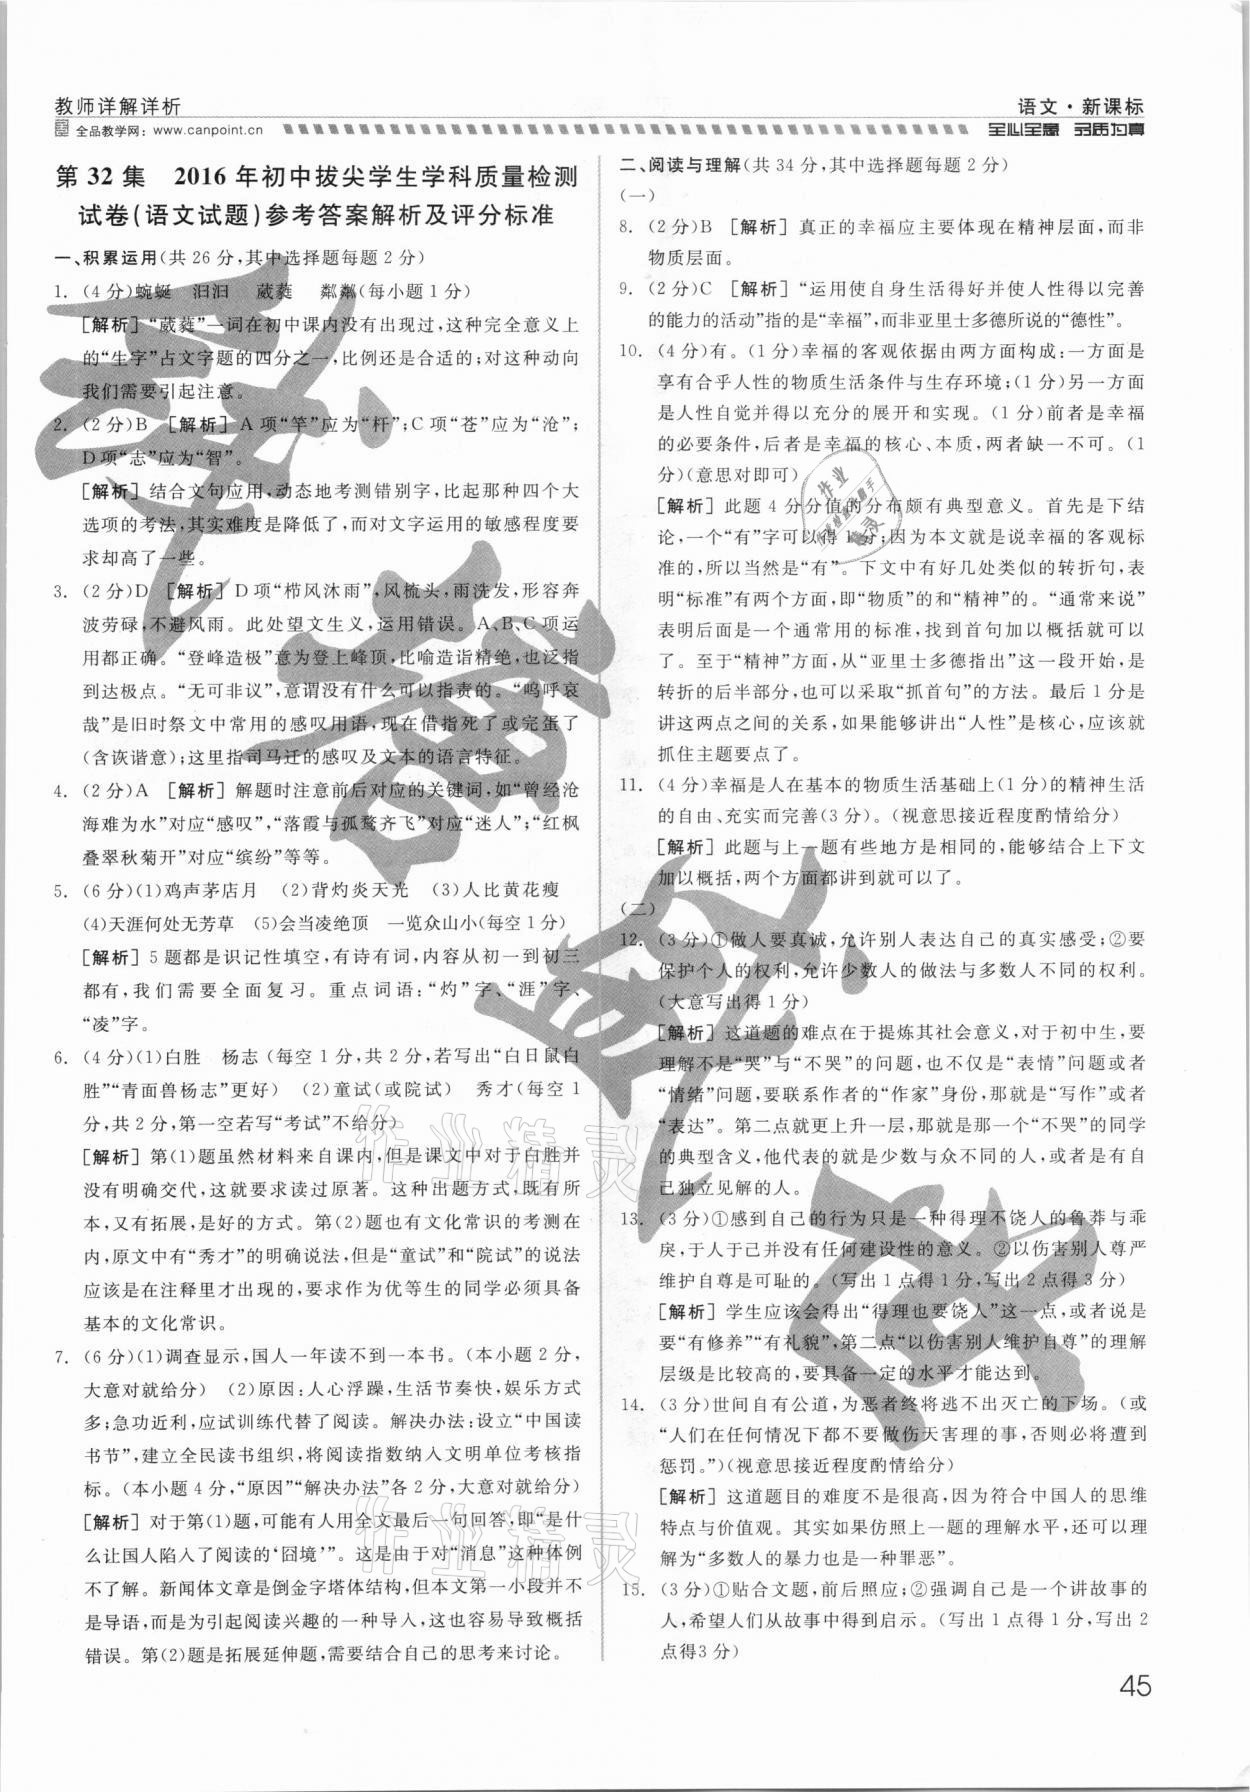 教师详解详析
全品教学网：www.canpoint.cn
语文·新课标
全心全意 品质为真
第 32 集　2016 年初中拔尖学生学科质量检测
试卷(语文试题)参考答案解析及评分标准
一、积累运用(共 26 分,其中选择题每题 2 分)
1. (4 分)蜿蜒　汩汩　葳蕤　粼粼(每小题 1 分)
[解析]“葳蕤”一词在初中课内没有出现过,这种完全意义上
的“生字”占文字题的四分之一,比例还是合适的;对这种动向
我们需要引起注意。
2. (2 分)B　[解析] A 项“竿”应为“杆”;C 项“苍”应为“沧”;
D 项“志”应为“智”。
[解析] 结合文句应用,动态地考测错别字,比起那种四个大
选项的考法,其实难度是降低了,而对文字运用的敏感程度要
求却高了一些。
3. (2 分)D　[解析] D 项“栉风沐雨”,风梳头,雨洗发,形容奔
波劳碌,不避风雨。此处望文生义,运用错误。A、B、C 项运
用都正确。“登峰造极”意为登上峰顶,比喻造诣精绝,也泛指
到达极点。“无可非议”,意谓没有什么可以指责的。“呜呼哀
哉”是旧时祭文中常用的感叹用语,现在借指死了或完蛋了
(含诙谐意);这里指司马迁的感叹及文本的语言特征。
4. (2 分)A　[解析] 解题时注意前后对应的关键词,如“曾经沧
海难为水”对应“感叹”,“落霞与孤鹜齐飞”对应“迷人”;“红枫
叠翠秋菊开”对应“缤纷”等等。
5. (6 分)(1)鸡声茅店月　(2)背灼炎天光　(3)人比黄花瘦
(4)天涯何处无芳草　(5)会当凌绝顶　一览众山小(每空 1 分)
[解析] 5 题都是识记性填空,有诗有词,内容从初一到初三
都有,我们需要全面复习。重点词语:“灼”字、“涯”字、
“凌”字。
6. (4 分)(1)白胜　杨志 (每空 1 分,共 2 分,若写出“白日鼠白
胜”“青面兽杨志”更好)　(2)童试(或院试)　秀才(每空 1
分,共 2 分,第一空若写“考试”不给分)
[解析] 第(1)题虽然材料来自课内,但是课文中对于白胜并
没有明确交代,这就要求读过原著。这种出题方式,既有所
本,又有拓展,是好的方式。第(2)题也有文化常识的考测在
内,原文中有“秀才”的明确说法,但是“童试”和“院试”的说法
应该是在注释里才出现的,要求作为优等生的同学必须具备
基本的文化常识。
7. (6 分)(1)调查显示,国人一年读不到一本书。(本小题 2 分,
大意对就给分)　(2)原因:人心浮躁,生活节奏快,娱乐方式
多;急功近利,应试训练代替了阅读。解决办法:设立“中国读
书节”,建立全民读书组织,将阅读指数纳入文明单位考核指
标。(本小题 4 分,“原因”“解决办法”各 2 分,大意对就给分)
[解析] 对于第(1)题,可能有人用全文最后一句回答,即“是什
么让国人陷入了阅读的‘囧境’”。这是由于对“消息”这种体例
不了解。新闻体文章是倒金字塔体结构,但本文第一小段并不
是导语,而是为引起阅读兴趣的一种导入,这也容易导致概括
错误。第(2)题是拓展延伸题,需要结合自己的思考来讨论。
二、阅读与理解(共 34 分,其中选择题每题 2 分)
(一)
8. (2 分)B　[解析] 真正的幸福应主要体现在精神层面,而非
物质层面。
9. (2 分)C　[解析]“运用使自身生活得好并使人性得以完善
的能力的活动”指的是“幸福”,而非亚里士多德所说的“德性”。
10. (4 分)有。(1 分)幸福的客观依据由两方面构成:一方面是
享有合乎人性的物质生活条件与生存环境;(1 分)另一方面
是人性自觉并得以充分的展开和实现。(1 分)前者是幸福
的必要条件,后者是幸福的核心、本质,两者缺一不可。(1
分)(意思对即可)
[解析] 此题 4 分分值的分布颇有典型意义。首先是下结
论,一个“有”字可以得 1 分;因为本文就是说幸福的客观标
准的,所以当然是“有”。下文中有好几处类似的转折句,表
明“标准”有两个方面,即“物质”的和“精神”的。“通常来说”
表明后面是一个通常用的标准,找到首句加以概括就可以
了。至于“精神”方面,从“亚里士多德指出”这一段开始,是
转折的后半部分,也可以采取“抓首句”的方法。最后 1 分是
讲这两点之间的关系,如果能够讲出“人性”是核心,应该就
抓住主题要点了。
11. (4 分)幸福是人在基本的物质生活基础上(1 分)的精神生活
的自由、充实而完善(3 分)。(视意思接近程度酌情给分)
[解析] 此题与上一题有些地方是相同的,能够结合上下文
加以概括,两个方面都讲到就可以了。
(二)
12. (3 分)①做人要真诚,允许别人表达自己的真实感受;②要
保护个人的权利,允许少数人的做法与多数人不同的权利。
(大意写出得 1 分)
[解析] 这道题的难点在于提炼其社会意义,对于初中生,要
理解不是“哭”与“不哭”的问题,也不仅仅是“表情”问题或者
“情绪”问题,要联系作者的“作家”身份,那就是“写作”或者
“表达”。第二点就更上升一层,那就是那个“不哭”的同学
的典型含义,他代表的就是少数与众不同的人,或者就是有自
己独立见解的人。
13. (3 分)①感到自己的行为只是一种得理不饶人的鲁莽与乖
戾,于人于己并没有任何建设性的意义。②以伤害别人尊严
维护自尊是可耻的。(写出 1 点得 1 分,写出 2 点得 3 分)
[解析] 学生应该会得出“得理也要饶人”这一点,或者说是
要“有修养”“有礼貌”,第二点“以伤害别人维护自尊”的理解
层级是比较高的,要具备一定的水平才能达到。
14. (3 分)世间自有公道,为恶者终将逃不出灭亡的下场。(或
“人们在任何情况下都不要做伤天害理的事,否则必将遭到
惩罚。”)(视意思接近程度酌情给分)
[解析] 这道题目的难度不是很高,因为符合中国人的思维
特点与价值观。其实如果仿照上一题的理解水平,还可以理
解为“多数人的暴力也是一种罪恶”。
15. (3 分)①贴合文题,前后照应;②强调自己是一个讲故事的
人,希望人们从故事中得到启示。(写出 1 点得 1 分,写出 2
点得3 分)
45
作业精灵
作业精灵